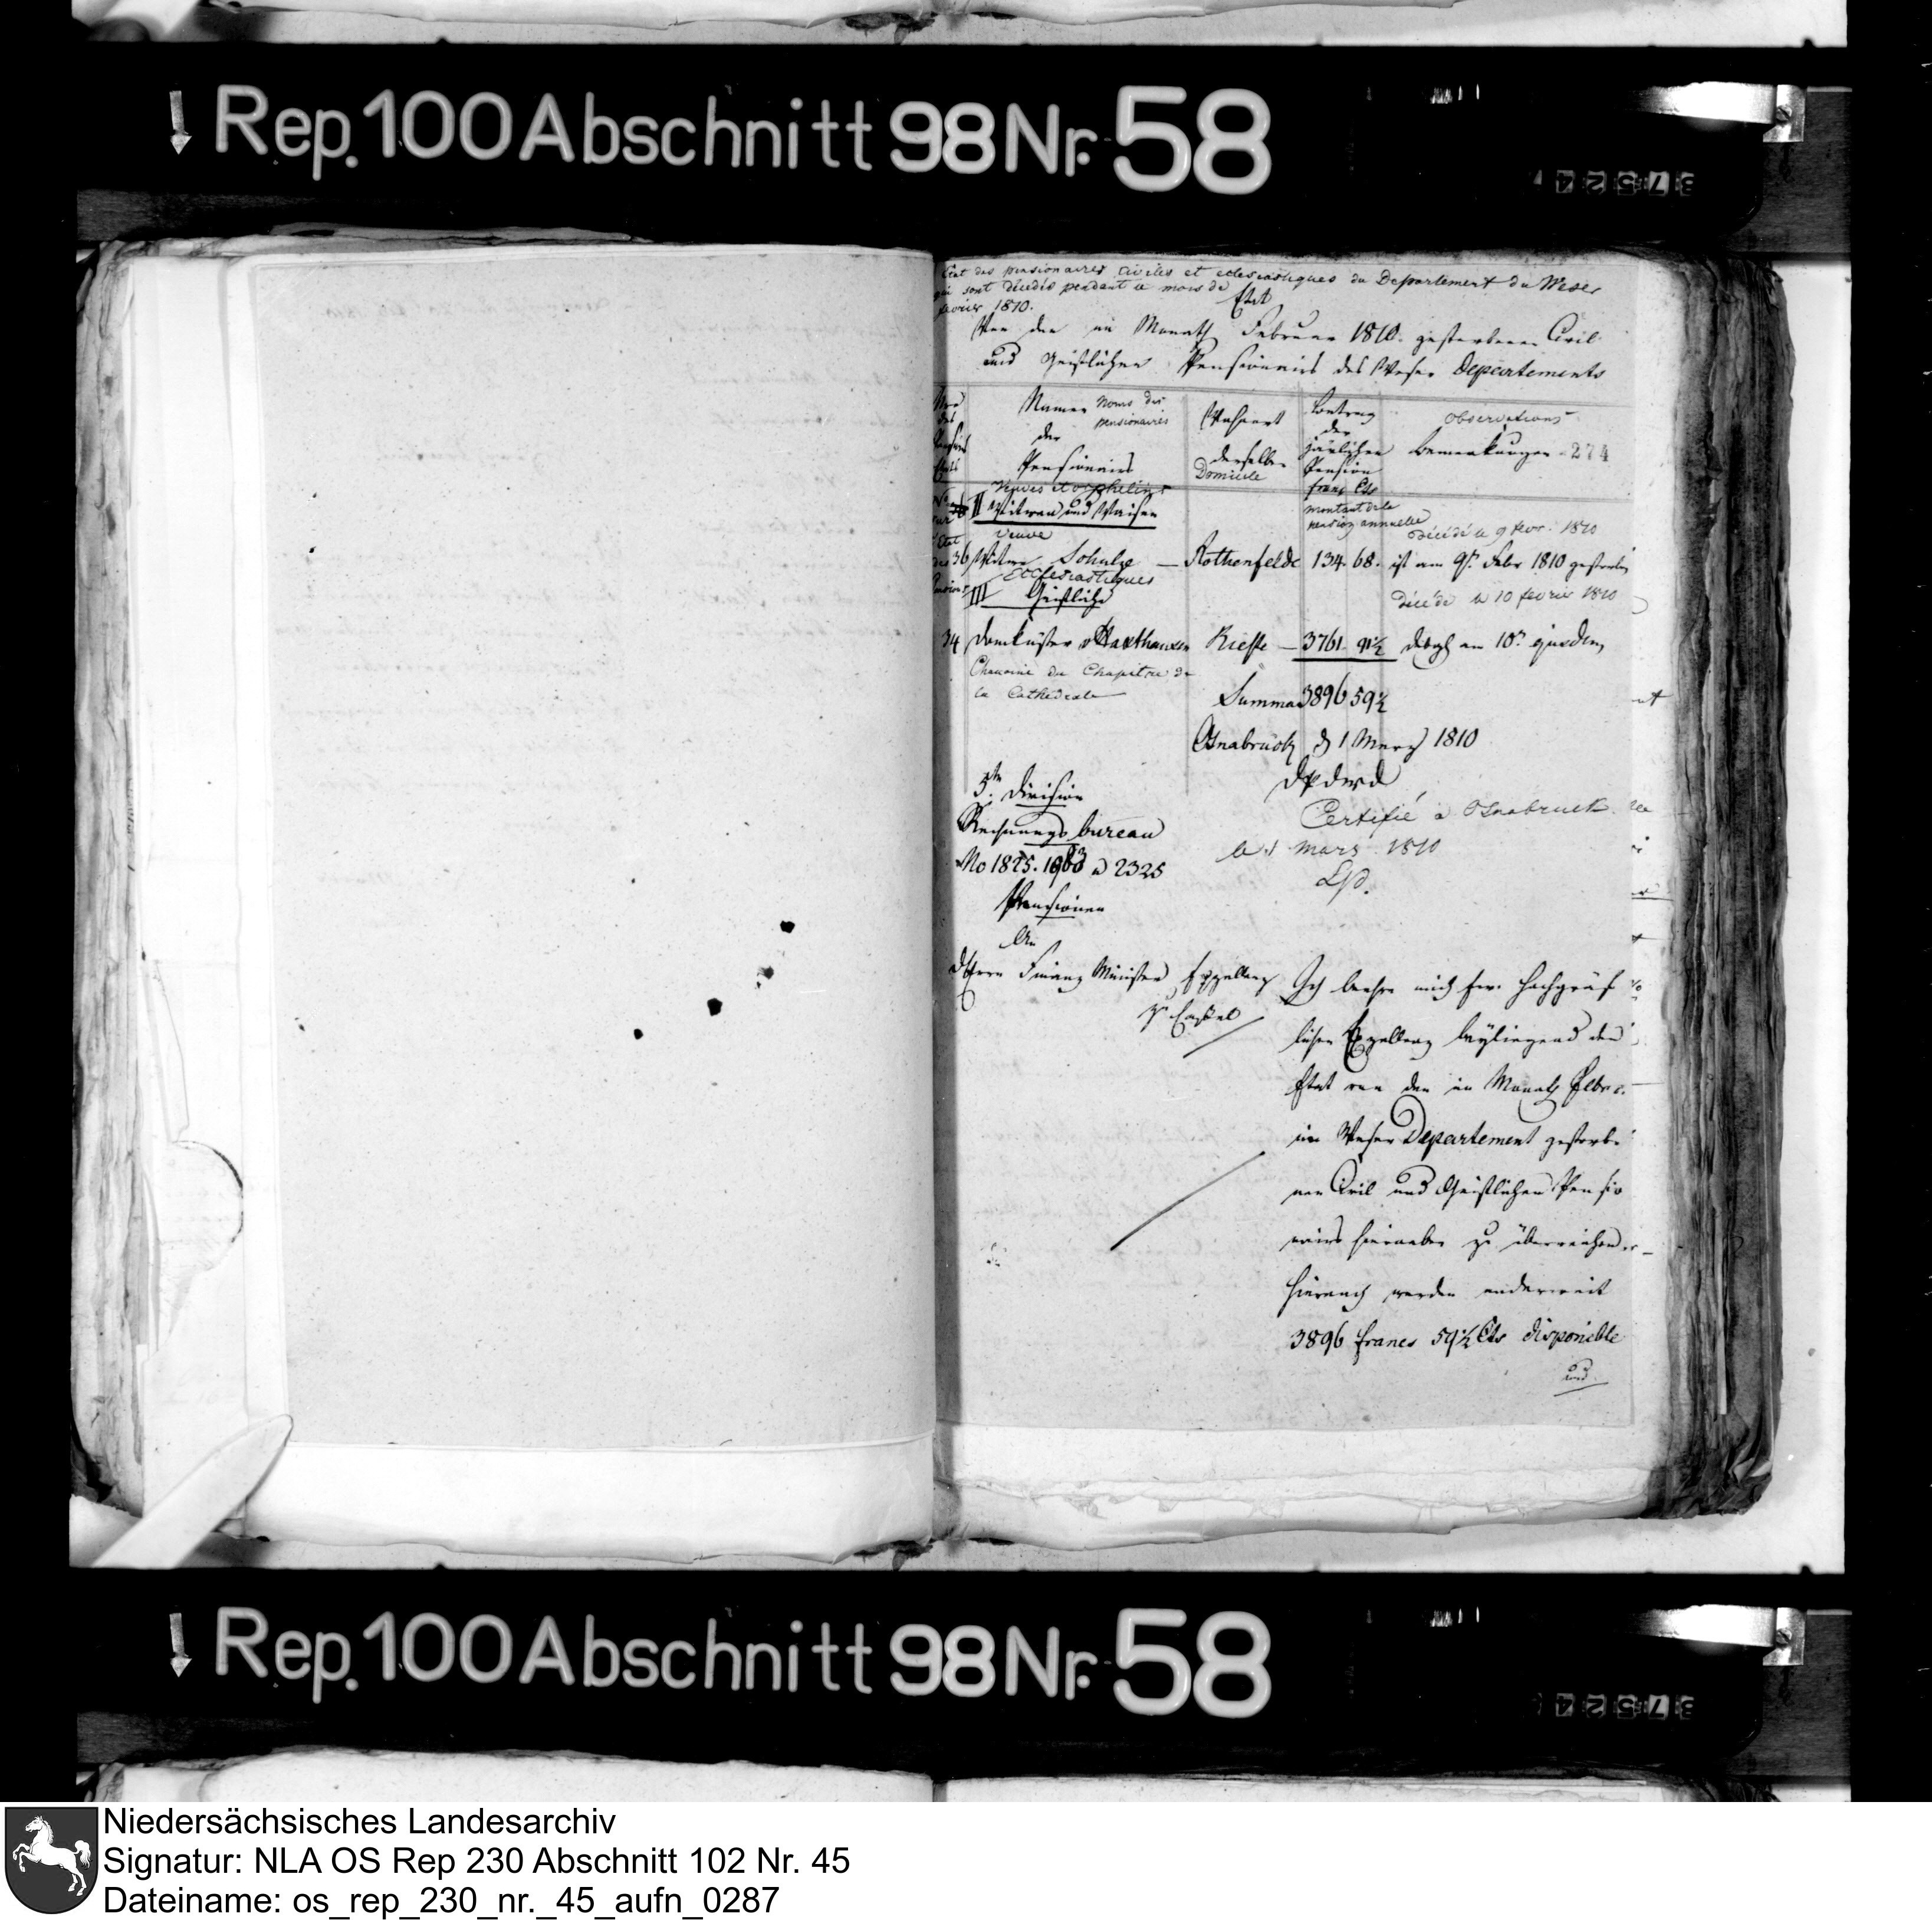 Rep. 100 Abschnitt 98 Nr. 58
Etat des pensionaires civiles et eclesiastiques du Departement du Weser
qui sont décédés pendant le mois de
fevrier 1810.
Etat
Von den im Monath Februar 1810. gestorbenen Civil
und Geistlichen Pensionairs des Weser Departements
Namen Noms des pensionaires
der
Pensionairs
Wohnort
derselben
Domicile
Betrag
der
jährlichen
Pension
franc Cts
montant de la
pension annuelle
observations
Bemerkungen
274
Veuves et orphelins
II Witwen und Waisen
veuve
décédé le 9 fevr. 1810
36 Witwe Schulze — Rothenfelde 134. 68. ist am 9ⁿ Febr 1810 gestorben
Ecclesiastiques
III Geistliche
décédé le 10 fevrier 1810
34 Domküster v Haxthausen Rieste — 3761 91½ desgl am 10ⁿ ejusdem
Chanoine du Chapitre de
la Cathedrale
Summa 3896 59½
Osnabrück d 1 Merz 1810
DPdWD
3te Division
Rechnungs bureau
No 1825. 1983 a 2325
Pensionen
Certifié a Osnabruck
le 1 mars 1810
An
d Herrn Finanz Minister Exzellenz
zu Cassel
Ich beehre mich Ew. Hochgräf
lichen Exzellenz beyliegend den
Etat von den im Monath Febr.
im Weser Departement gestorbe
nen Civil und Geistlichen Pensio
nairs hierneben zu überreichen
hiernach werden anderweit
3896 francs 59½ Cts disponible
und
Rep. 100 Abschnitt 98 Nr. 58
Niedersächsisches Landesarchiv
Signatur: NLA OS Rep 230 Abschnitt 102 Nr. 45
Dateiname: os_rep_230_nr._45_aufn_0287